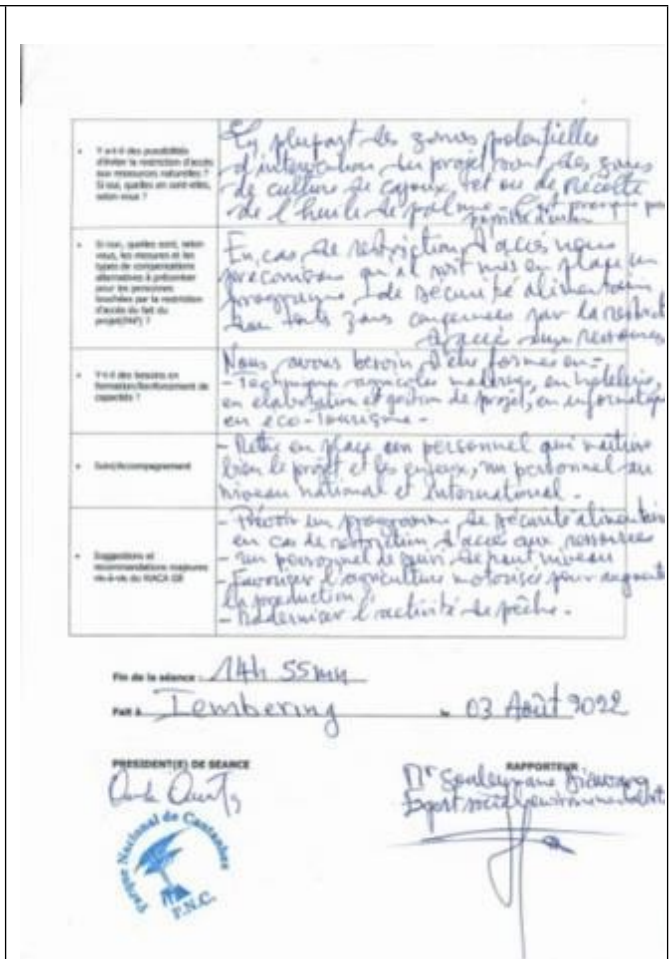 • Y a-t-il des possibilités
d'éviter la restriction d'accès
aux ressources naturelles ?
Si oui, quelles en sont-elles,
selon vous ?
La plupart des zones potentielles
d'intervention du projet sont des zones
de culture de cajoux et ou de récolte
de l'huile de palme - C'est presque pas
possible d'éviter
• Si non, quelles sont, selon
vous, les mesures et les
types de compensations
alternatives à préconiser
pour les personnes
touchées par la restriction
d'accès du fait du
projet(PAP) ?
En cas de restriction d'accès nous
préconisons qu'il soit mis en place un
programme de sécurité alimentaire
dans toutes zones concernées par la restrict
d'accès aux ressources
• Y-t-il des besoins en
formation/Renforcement de
capacités ?
Nous avons besoin d'être formés en :-
- Technique agricoles modernes, en hôtelerie,
en élaboration et gestion de projet, en informatique
en éco-tourisme -
• Suivi/Accompagnement
- Mettre en place un personnel qui maîtrise
bien le projet et les enjeux, un personnel au
niveau national et international -
• Suggestions et
recommandations majeures
vis-à-vis du WACA GB
- Prévoir un programme de sécurité alimentaire
en cas de restriction d'accès aux ressources
- un personnel de suivi de haut niveau
- Favoriser l'agriculture motorisée pour augmente
la production ;
- Moderniser l'activité de pêche -
Fin de la séance : 14h 55mn
Fait à Tembering le 03 Août 2022
PRESIDENT(E) DE SEANCE
RAPPORTEUR
Mr Souleymane
Expert social environnementaliste
Parque Nacional de Cantanhez
P.N.C.